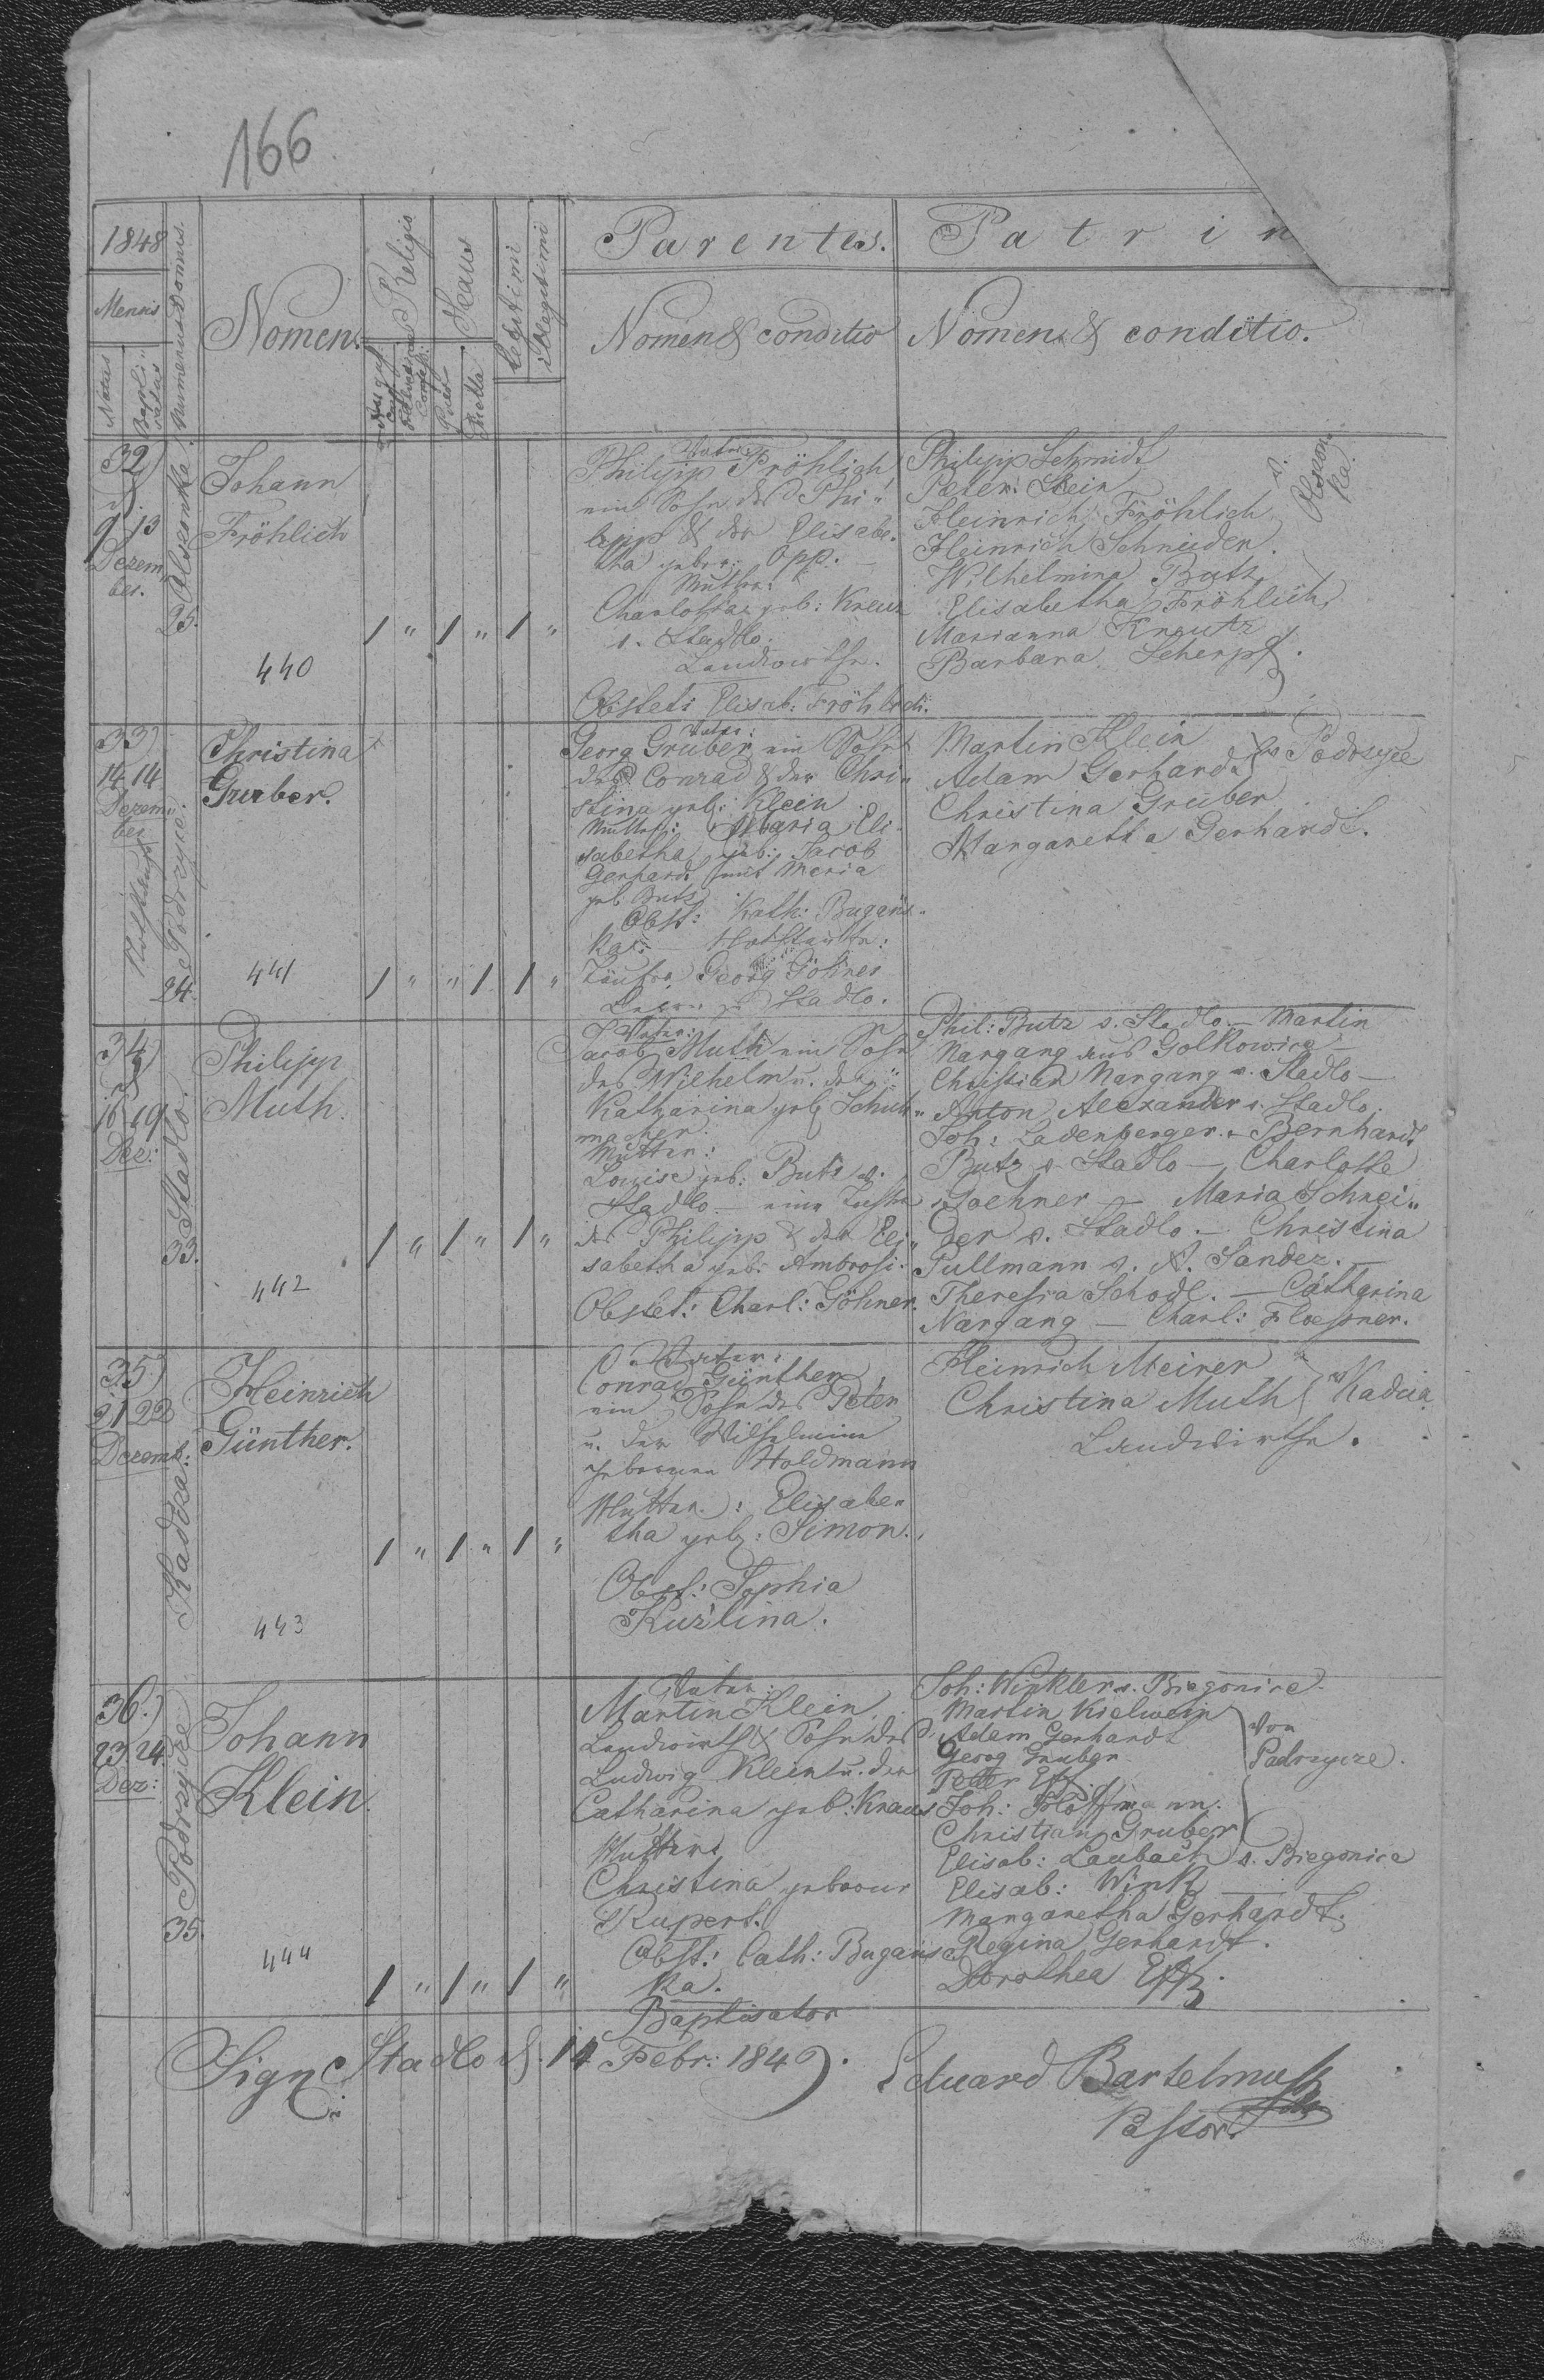 166
1848
Mensis
Natus
Baptisatus
Numerus Domus.
Nomen.
Religio
Sexus
Puer
Puella
Legitimi
Illegitimi
Parentes.
Patrin
Nomen & conditio
Nomen & conditio.
32)
9 13
Dezem
ber.
Olszonka
25.
Johann
Fröhlich
440
1 " 1 " 1 "
Vater:
Philipp Fröhlich
ein Sohn des Phi"
lipp & der Elisabe"
tha gebor: Opp. —
Mutter:
Charlotta geb: Kreuz
v. Stadlo.
Landwirthe.
Obstet: Elisab: Fröhlich.
Philipp Schmidt
Peter Stein
Heinrich Fröhlich
Heinrich Schneider.
Wilhelmina Butz
Elisabetha Fröhlich
Marianna Kreutz
Barbara Scherpf.
v. Olszon
ka.
33)
14 14
Dezem"
ber
Nothtaufe
Podrzyce.
24.
Christina
Gruber.
441
1 " " 1 1 "
Vater:
Georg Gruber ein Sohn
des Conrad & der Chri"
stina geb: Klein
Mutter: Maria Eli"
sabetha geb: Jacob
Gerhardt mit Maria
geb Butz
Obst: Kath: Bugańs"
ka: — Nothtaufe:
Täufer Georg Göhner
Stadlo.
Martin Klein
Adam Gerhardt
v Podrzyce
Christina Gruber
Margaretha Gerhardt.
34)
18 19
Dez:
Stadlo.
33.
Philipp
Muth.
442
1 " 1 " 1 "
Vater:
Jacob Muth ein Sohn
des Wilhelm u. der
Katharina geb Schuh"
macher.
Mutter:
Louise geb: Butz v.
Stadlo — eine Tochter
des Philipp & der Eli"
sabetha geb: Ambrosi.
Obstet: Charl: Göhner.
Phil: Butz v. Stadlo — Martin
Nargang aus Golkowice —
Christian Nargang v. Stadlo —
Anton Alexander v. Stadlo.
Joh: Ladenberger. — Bernhardt
Butz v. Stadlo — Charlotte
Goehner — Maria Schnei"
der v. Stadlo. — Christina
Pullmann v. N. Sandez. —
Theresia Schodl. — Catharina
Nargang — Charl: Floessner.
35)
21 22
Dezemb:
Kadcza
Heinrich
Günther.
443
1 " 1 " 1 "
Vater:
Conrad Günther
ein Sohn des Peter
u. der Wilhelmine
geborene Holdmann
Mutter: Elisabe"
tha geb: Simon.
Obst: Sophia
Kuźlina.
Heinrich Meirer
Christina Muth
v Kadcza
Landwirthe.
36.)
23 24
Dez:
Podrzyce
35.
Johann
Klein.
444
1 " 1 " 1 "
Vater:
Martin Klein,
Landwirth & Sohn des
Ludwig Klein u. der
Catharina geb: Kraus
Mutter:
Christina geborene
Rupert.
Obst: Cath: Bugańs
ka.
Baptisator
Joh: Winkler v. Biegonice.
Martin Kielwein
Adam Gerhardt
Georg Gruber
Peter Eff
Joh: Hoffmann.
Christian Gruber
von
Podrzyce.
Elisab: Laubach v. Biegonice
Elisab: Wink ——
Margaretha Gerhardt.
Regina Gerhardt.
Dorothea Eff.
Sign: Stadlo d. 14 Febr: 1849.
Eduard Bartelmuß
Pastor.